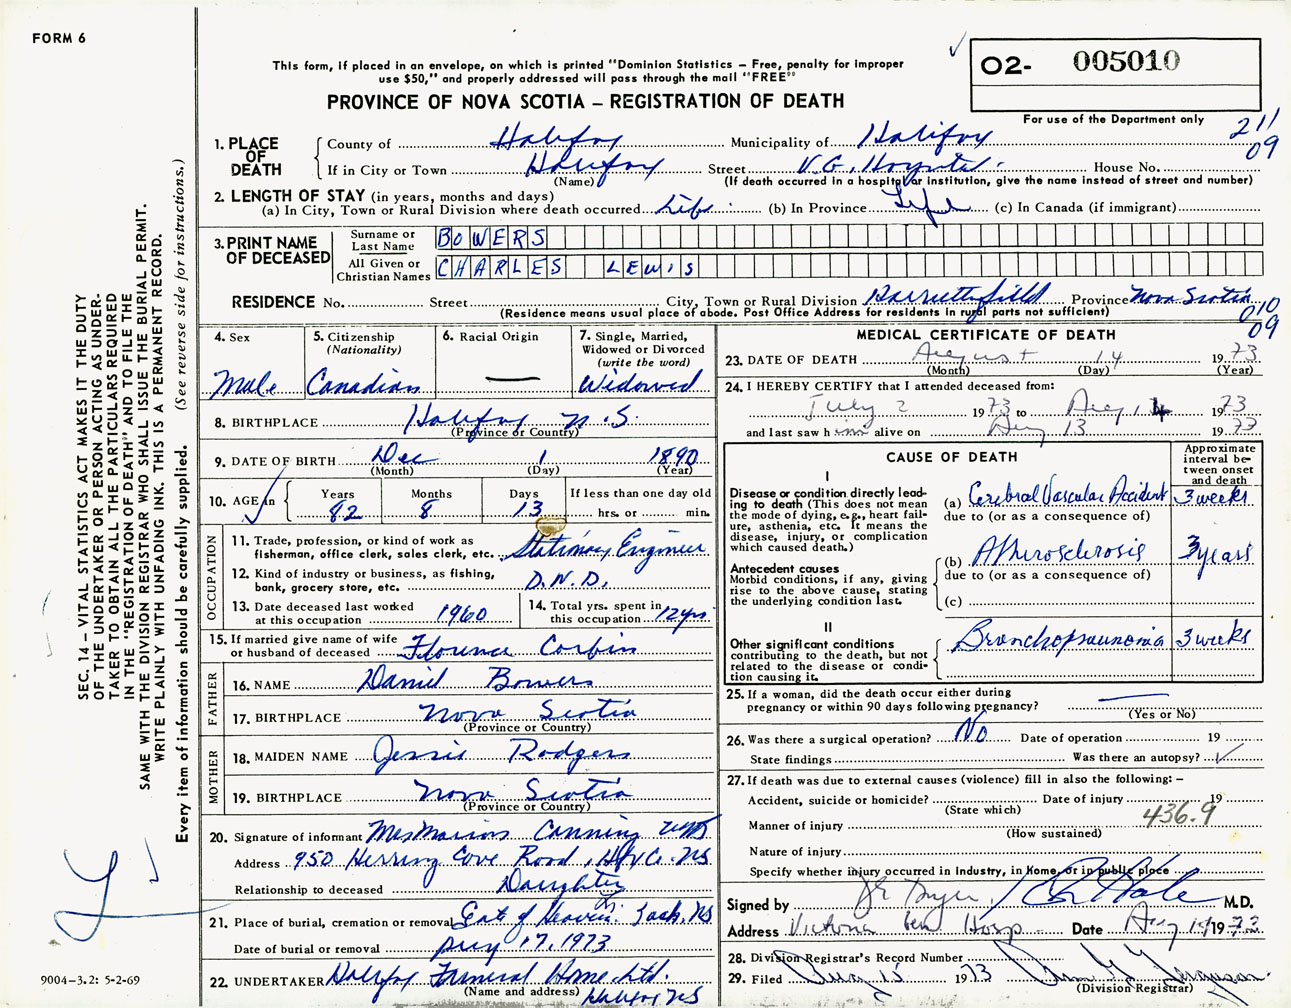 FORM 6
This form, if placed in an envelope, on which is printed "Dominion Statistics – Free, penalty for improper
use $50," and properly addressed will pass through the mail "FREE"
PROVINCE OF NOVA SCOTIA – REGISTRATION OF DEATH
02- 005010
For use of the Department only
211
09
1. PLACE OF DEATH
County of Halifax Municipality of Halifax
If in City or Town Halifax Street V.G. Hospital House No.
(Name) (If death occurred in a hospital or institution, give the name instead of street and number)
2. LENGTH OF STAY (in years, months and days)
(a) In City, Town or Rural Division where death occurred Life (b) In Province Life (c) In Canada (if immigrant)
3. PRINT NAME OF DECEASED
Surname or Last Name BOWERS
All Given or Christian Names CHARLES LEWIS
RESIDENCE No. Street City, Town or Rural Division Harrietsfield Province Nova Scotia
(Residence means usual place of abode. Post Office Address for residents in rural parts not sufficient)
010
09
4. Sex
Male
5. Citizenship
(Nationality)
Canadian
6. Racial Origin
—
7. Single, Married,
Widowed or Divorced
(write the word)
Widowed
8. BIRTHPLACE Halifax N.S.
(Province or Country)
9. DATE OF BIRTH Dec 1 1890
(Month) (Day) (Year)
10. AGE in
Years 82
Months 8
Days 13
If less than one day old
hrs. or min.
OCCUPATION
11. Trade, profession, or kind of work as
fisherman, office clerk, sales clerk, etc. Stationary Engineer
12. Kind of industry or business, as fishing,
bank, grocery store, etc. D.N.D.
13. Date deceased last worked
at this occupation 1960
14. Total yrs. spent in
this occupation 12 yrs
15. If married give name of wife
or husband of deceased Florence Corbin
FATHER
16. NAME Daniel Bowers
17. BIRTHPLACE Nova Scotia
(Province or Country)
MOTHER
18. MAIDEN NAME Jessie Rodgers
19. BIRTHPLACE Nova Scotia
(Province or Country)
20. Signature of informant Mrs Marion Canning
Address 950 Herring Cove Road, Hfx Co. NS
Relationship to deceased Daughter
21. Place of burial, cremation or removal Gate of Heaven. Sack. NS
Date of burial or removal Aug 17, 1973
22. UNDERTAKER Halifax Funeral Home Ltd.
(Name and address) Halifax NS
MEDICAL CERTIFICATE OF DEATH
23. DATE OF DEATH August 14 1973
(Month) (Day) (Year)
24. I HEREBY CERTIFY that I attended deceased from:
July 2 1973 to Aug 14 1973
and last saw him alive on Aug 13 1973
CAUSE OF DEATH
Approximate
interval be-
tween onset
and death
I
Disease or condition directly lead-
ing to death (This does not mean
the mode of dying, e.g., heart fail-
ure, asthenia, etc. It means the
disease, injury, or complication
which caused death.)
(a) Cerebral Vascular Accident 3 weeks
due to (or as a consequence of)
(b) Atherosclerosis 3 years
due to (or as a consequence of)
Antecedent causes
Morbid conditions, if any, giving
rise to the above cause, stating
the underlying condition last.
(c)
II
Other significant conditions
contributing to the death, but not
related to the disease or condi-
tion causing it.
Bronchopneumonia 3 weeks
25. If a woman, did the death occur either during
pregnancy or within 90 days following pregnancy? —
(Yes or No)
26. Was there a surgical operation? No Date of operation 19
State findings Was there an autopsy? ✓
27. If death was due to external causes (violence) fill in also the following: –
Accident, suicide or homicide? Date of injury 19
(State which)
436.9
Manner of injury
(How sustained)
Nature of injury
Specify whether injury occurred in Industry, in Home, or in public place
Signed by M.D.
Address Victoria Gen Hosp Date Aug 14 1973
28. Division Registrar's Record Number
29. Filed Aug 15 1973
(Division Registrar)
SEC. 14 – VITAL STATISTICS ACT MAKES IT THE DUTY
OF THE UNDERTAKER OR PERSON ACTING AS UNDER-
TAKER TO OBTAIN ALL THE PARTICULARS REQUIRED
IN THE "REGISTRATION OF DEATH" AND TO FILE THE
SAME WITH THE DIVISION REGISTRAR WHO SHALL ISSUE THE BURIAL PERMIT.
WRITE PLAINLY WITH UNFADING INK. THIS IS A PERMANENT RECORD.
Every item of information should be carefully supplied. (See reverse side for instructions.)
9004–3.2: 5-2-69